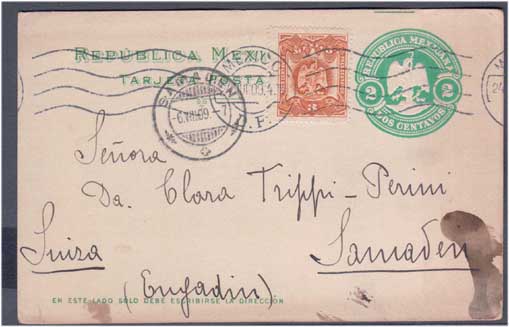 REPÚBLICA MEXI
TARJETA POSTA
REPUBLICA MEXICANA
2 2
DOS CENTAVOS
-6.VIII.09
Señora
Da. Clara Trippi-Perini
Suiza Samaden
(Engadin)
EN ESTE LADO SOLO DEBE ESCRIBIRSE LA DIRECCIÓN